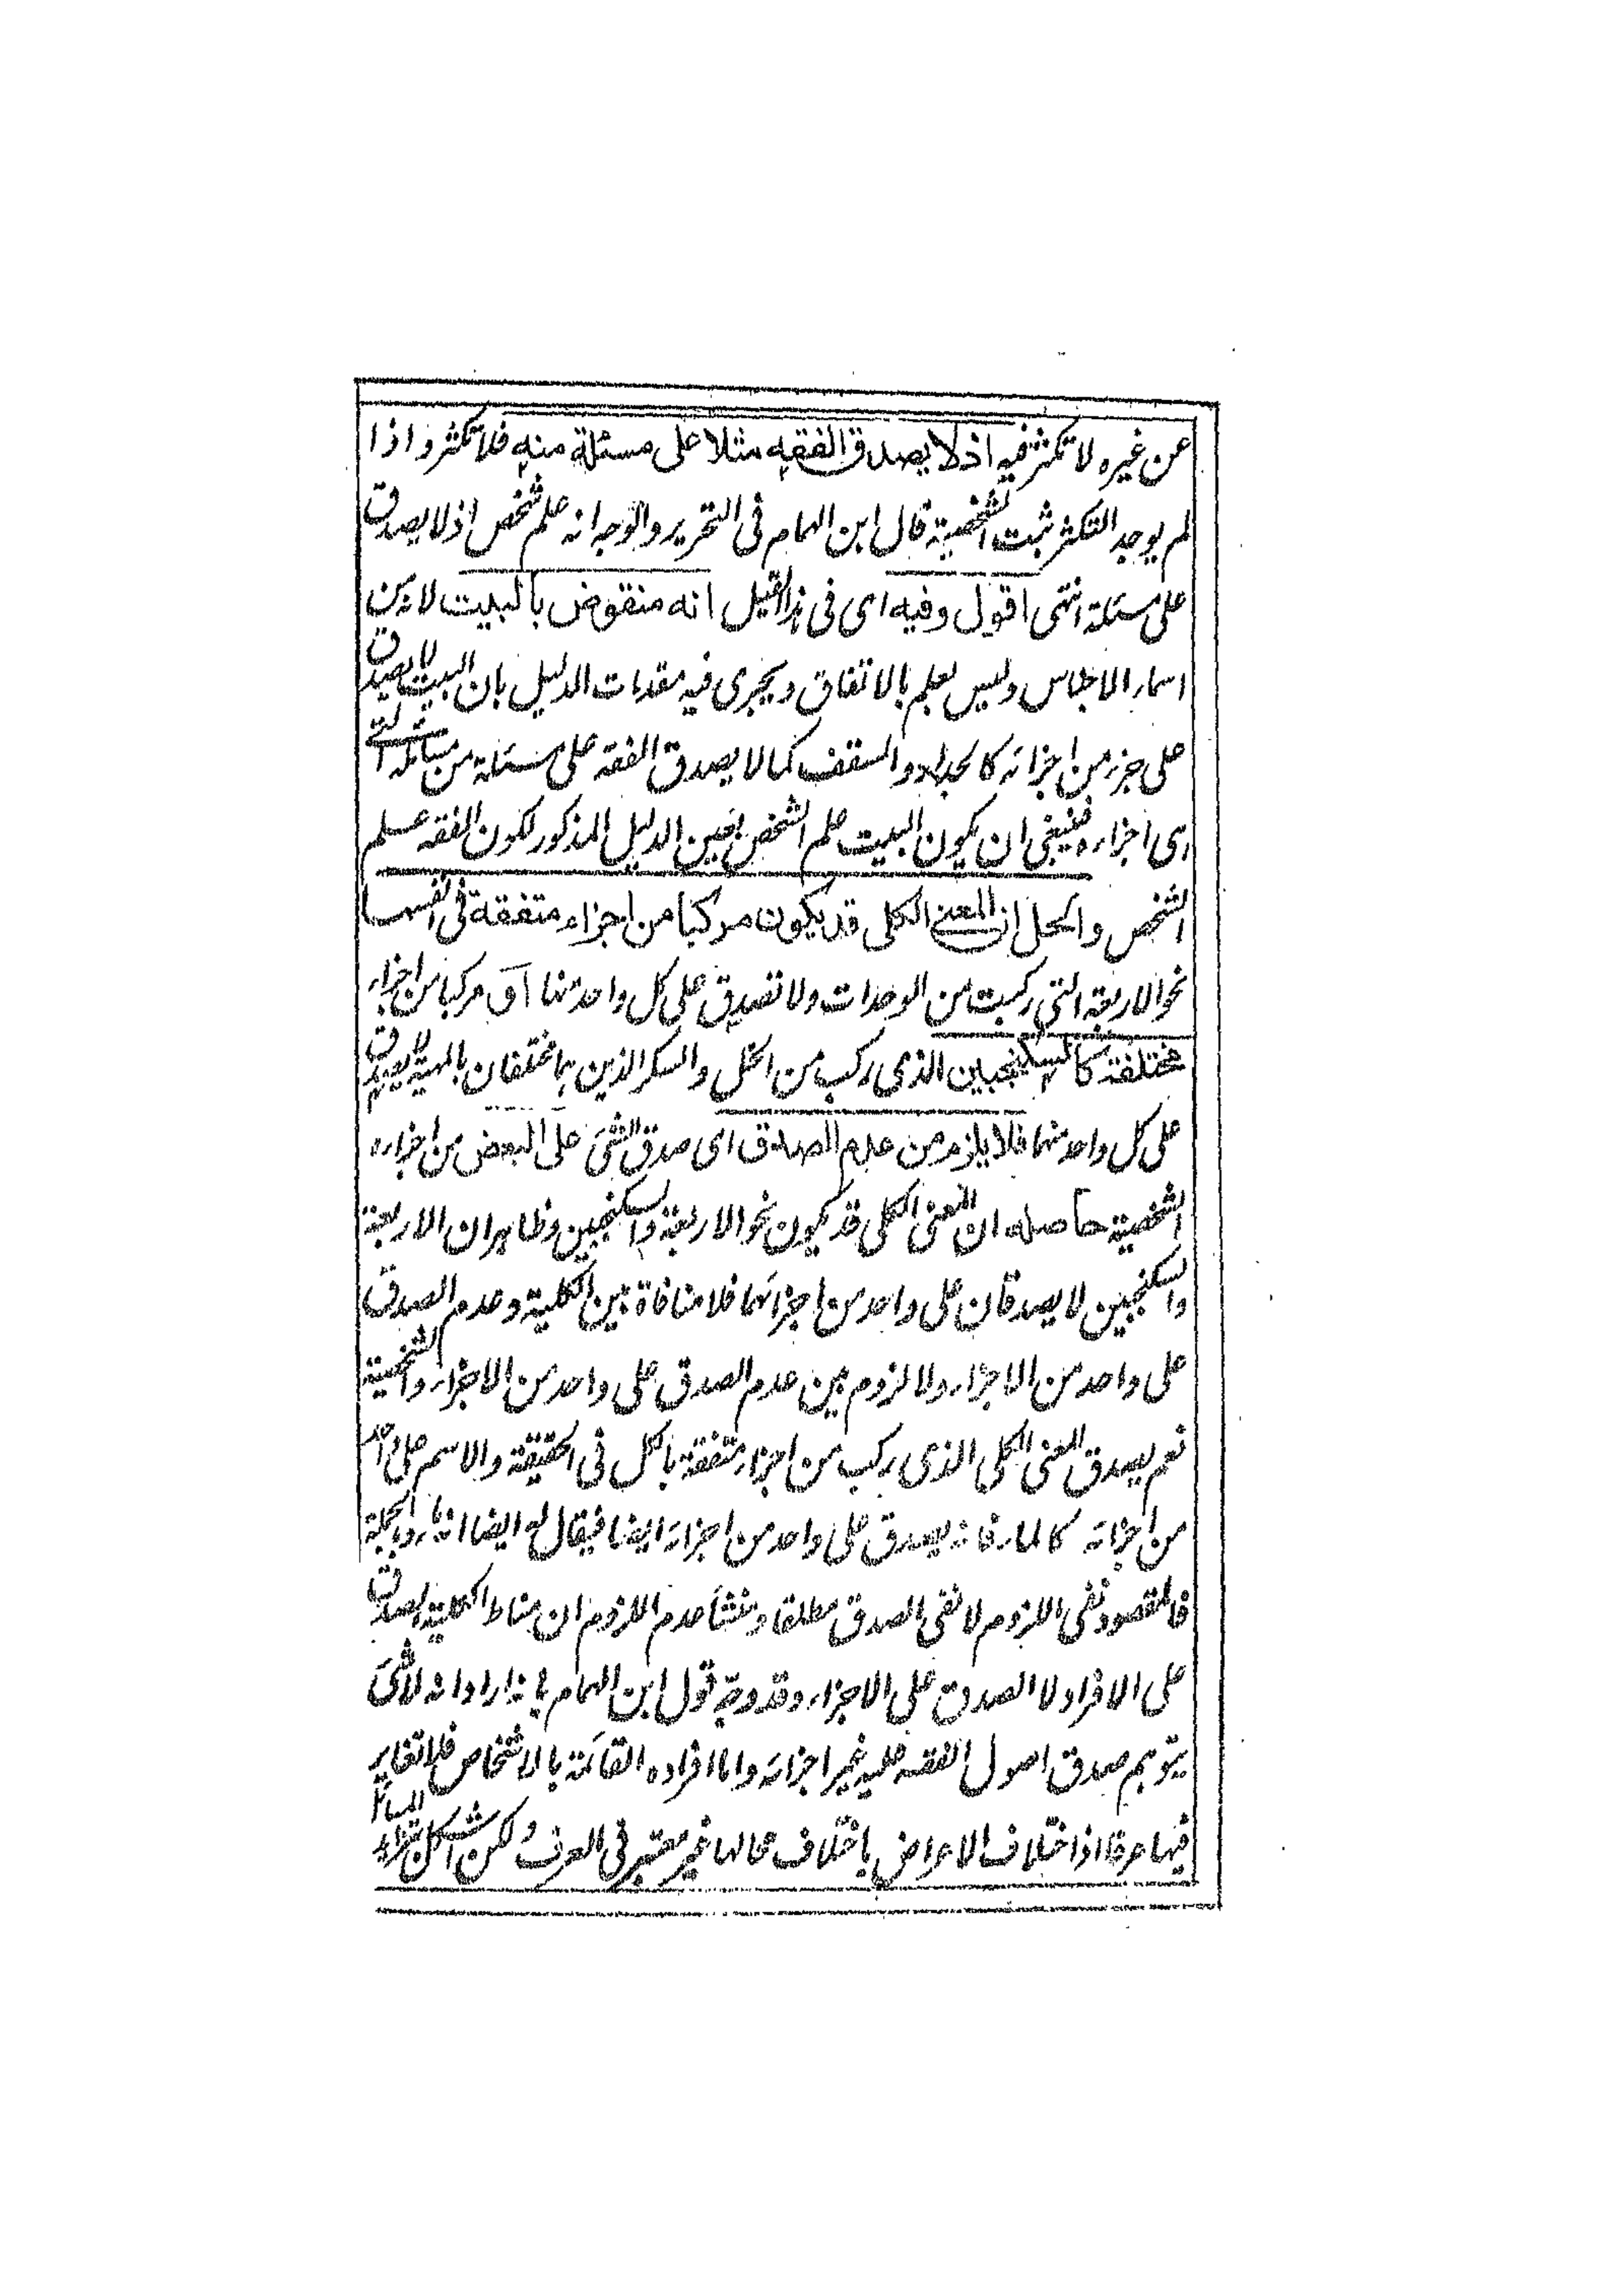 عن غيره لا تكثر فيه اذ لا يصدق الفقه مثلا على مسئلة منه فلا تكثر و اذا
لم يوجد التكثر ثبت الشخصية قال ابن الهمام فى التحرير والوجه انه علم شخص اذ لا يصدق
على مسئلة انتهى اقول وفيه اى فى هذا القيل انه منقوض بالبيت لانه من
اسماء الاجناس وليس بعلم بالاتفاق ويجرى فيه مقدمات الدليل بان البيت لا يصدق
على جزء من اجزائه كالجدار والسقف كما لا يصدق الفقه على مسئلة من مسائله التى
هى اجزاءه فينبغى ان يكون البيت علم الشخص بعين الدليل المذكور لكون الفقه علم
الشخص والحل ان المعنى الكلى قد يكون مركبا من اجزاء متفقة فى انفسها
نحو الاربعة التى ركبت من الوحدات ولا تصدق على كل واحد منها آو مركبا من اجزاء
مختلفة كالسكنجبين الذى ركب من الخل والسكر الذين هما مختلفان بالمهية لا يصدق
على كل واحد منهما فلا يلزم من عدم الصدق اى صدق الشئ على البعض من اجزاءه
الشخصية حاصله ان المعنى الكلى قد يكون نحو الاربعة والسكنجبين وظاهر ان الاربعة
والسكنجبين لا يصدقان على واحد من اجزائهما فلا منافاة بين الكلية وعدم الصدق
على واحد من الاجزاء ولا لزوم بين عدم الصدق على واحد من الاجزاء والشخصية
نعم يصدق المعنى الكلى الذى ركب من اجزاء متفقة بالكل فى الحقيقة والاسم على واحد
من اجزائه كالماء فانه يصدق على واحد من اجزائه ايضا فيقال له ايضا انه ماء وبالجملة
فالمقصود نفى اللزوم لا نفى الصدق مطلقا ومنشأ عدم اللزوم ان مناط الكلية الصدق
على الافراد لا الصدق على الاجزاء وقد وجه قول ابن الهمام بانه اراد انه لا شئ
يتوهم صدق اصول الفقه عليه غير اجزائه واما افراده القائمة بالاشخاص فلا تغاير
فيها عرفا اذ اختلاف الاعراض باختلاف محالها غير معتبر فى العرف ولكن اشكل المسائل